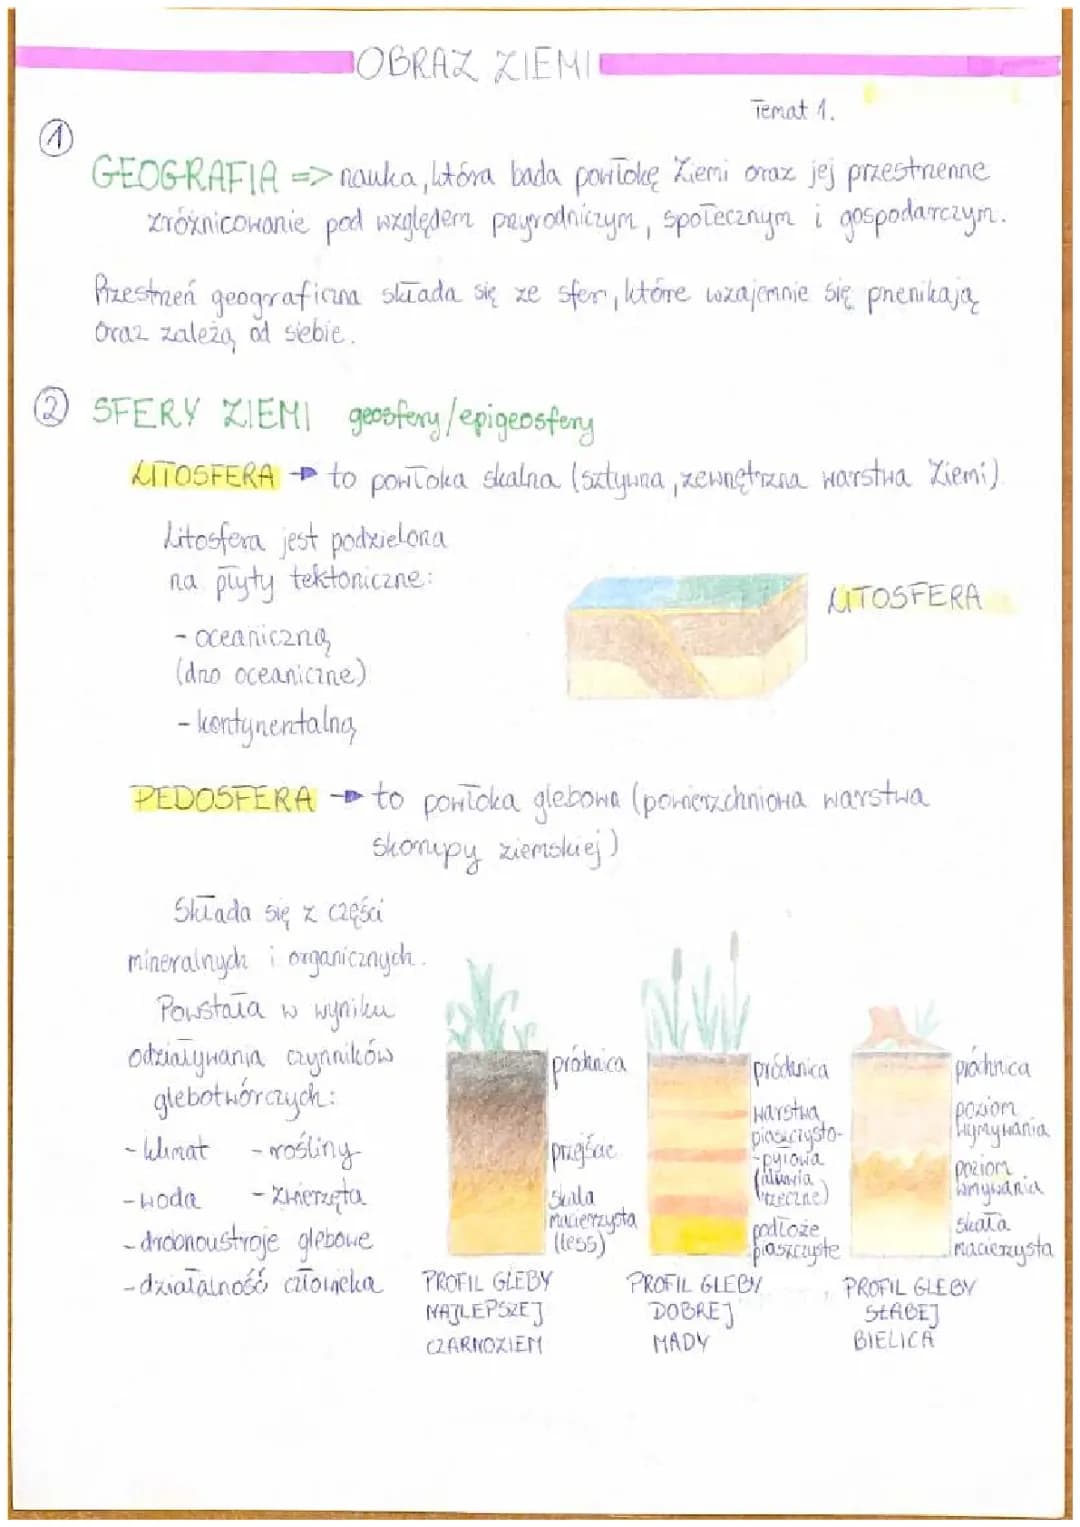 OBRAZ ZIEMI
Temat 1.
①
GEOGRAFIA => nauka, która bada powłokę Ziemi oraz jej przestrzenne
zróżnicowanie pod względem przyrodniczym, społecznym i gospodarczym.
Przestrzeń geograficzna składa się ze sfer, które wzajemnie się przenikają
oraz zależą od siebie.
② SFERY ZIEMI geosfery/epigeosfery
LITOSFERA → to powłoka skalna (sztywna, zewnętrzna warstwa Ziemi)
Litosfera jest podzielona
na płyty tektoniczne:
LITOSFERA
- oceaniczną
(dno oceaniczne)
- kontynentalną
PEDOSFERA → to powłoka glebowa (powierzchniowa warstwa
skorupy ziemskiej)
Składa się z części
mineralnych i organicznych.
Powstała w wyniku
odziaływania czynników
glebotwórczych:
- klimat - rośliny
- woda - zwierzęta
- drobnoustroje glebowe
- działalność człowieka
próchnica
przejście
skała
macierzysta
(less)
PROFIL GLEBY
NAJLEPSZEJ
CZARNOZIEM
próchnica
warstwa
piaszczysto-
-pyłowa
(aluwia
rzeczne)
podłoże
piaszczyste
PROFIL GLEBY
DOBREJ
MADY
próchnica
poziom
wymywania
poziom
wmywania
skała
macierzysta
PROFIL GLEBY
SŁABEJ
BIELICA